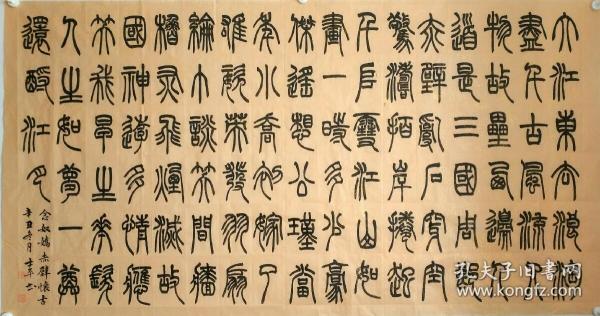 大江東去浪淘
盡千古風流人
物故壘西邊人
道是三國周郎
赤壁亂石穿空
驚濤拍岸捲起
千堆雪江山如
畫一時多少豪
傑遙想公瑾當
年小喬初嫁了
雄姿英發羽扇
綸巾談笑間檣
櫓灰飛煙滅故
國神遊多情應
笑我早生華髮
人生如夢一尊
還酹江月
念奴嬌赤壁懷古
辛丑冬月
孔夫子旧书网
www.kongfz.com